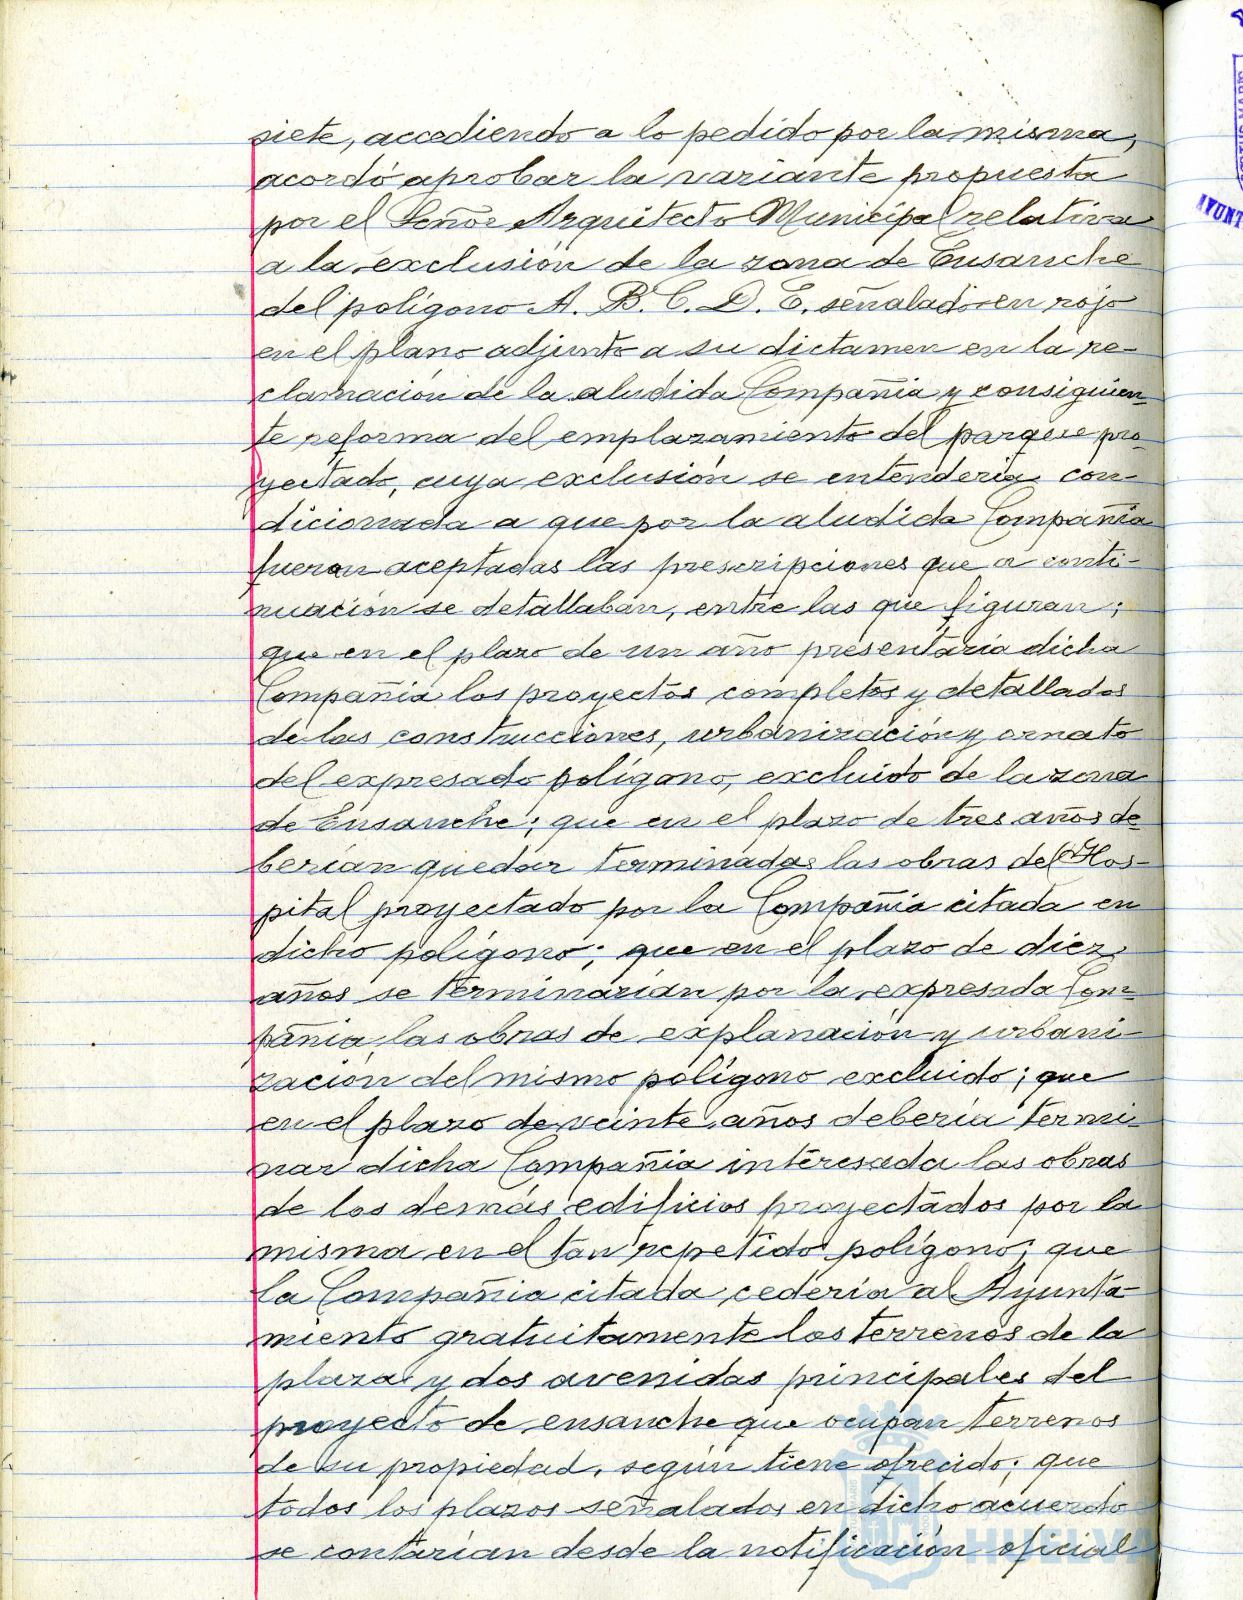 siete, accediendo a lo pedido por la misma,
acordó aprobar la variante propuesta
por el Señor Arquitecto Municipal relativa
a la exclusión de la zona de Ensanche
del polígono A. B. C. D. E. señalado en rojo
en el plano adjunto a su dictamen en la re-
clamación de la aludida Compañia y consiguien-
te reforma del emplazamiento del parque pro-
yectado, cuya exclusión se entendería con-
dicionada a que por la aludida Compañia
fueran aceptadas las prescripciones que a conti-
nuación se detallaban, entre las que figuran;
que en el plazo de un año presentaría dicha
Compañia los proyectos completos y detallados
de las construcciones, urbanización y ornato
del expresado polígono, excluido de la zona
de Ensanche; que en el plazo de tres años de-
berían quedar terminadas las obras del Hos-
pital proyectado por la Compañia citada en
dicho polígono; que en el plazo de diez
años se terminarían por la expresada Com-
pañia las obras de explanación y urbani-
zación del mismo polígono excluido; que
en el plazo de veinte años debería termi-
nar dicha Compañia interesada las obras
de los demás edificios proyectados por la
misma en el tan repetido polígono; que
la Compañia citada cedería al Ayunta-
miento gratuitamente los terrenos de la
plaza y dos avenidas principales del
proyecto de ensanche que ocupan terrenos
de su propiedad, según tiene ofrecido; que
todos los plazos señalados en dicho acuerdo
se contarían desde la notificación oficial
HUELVA